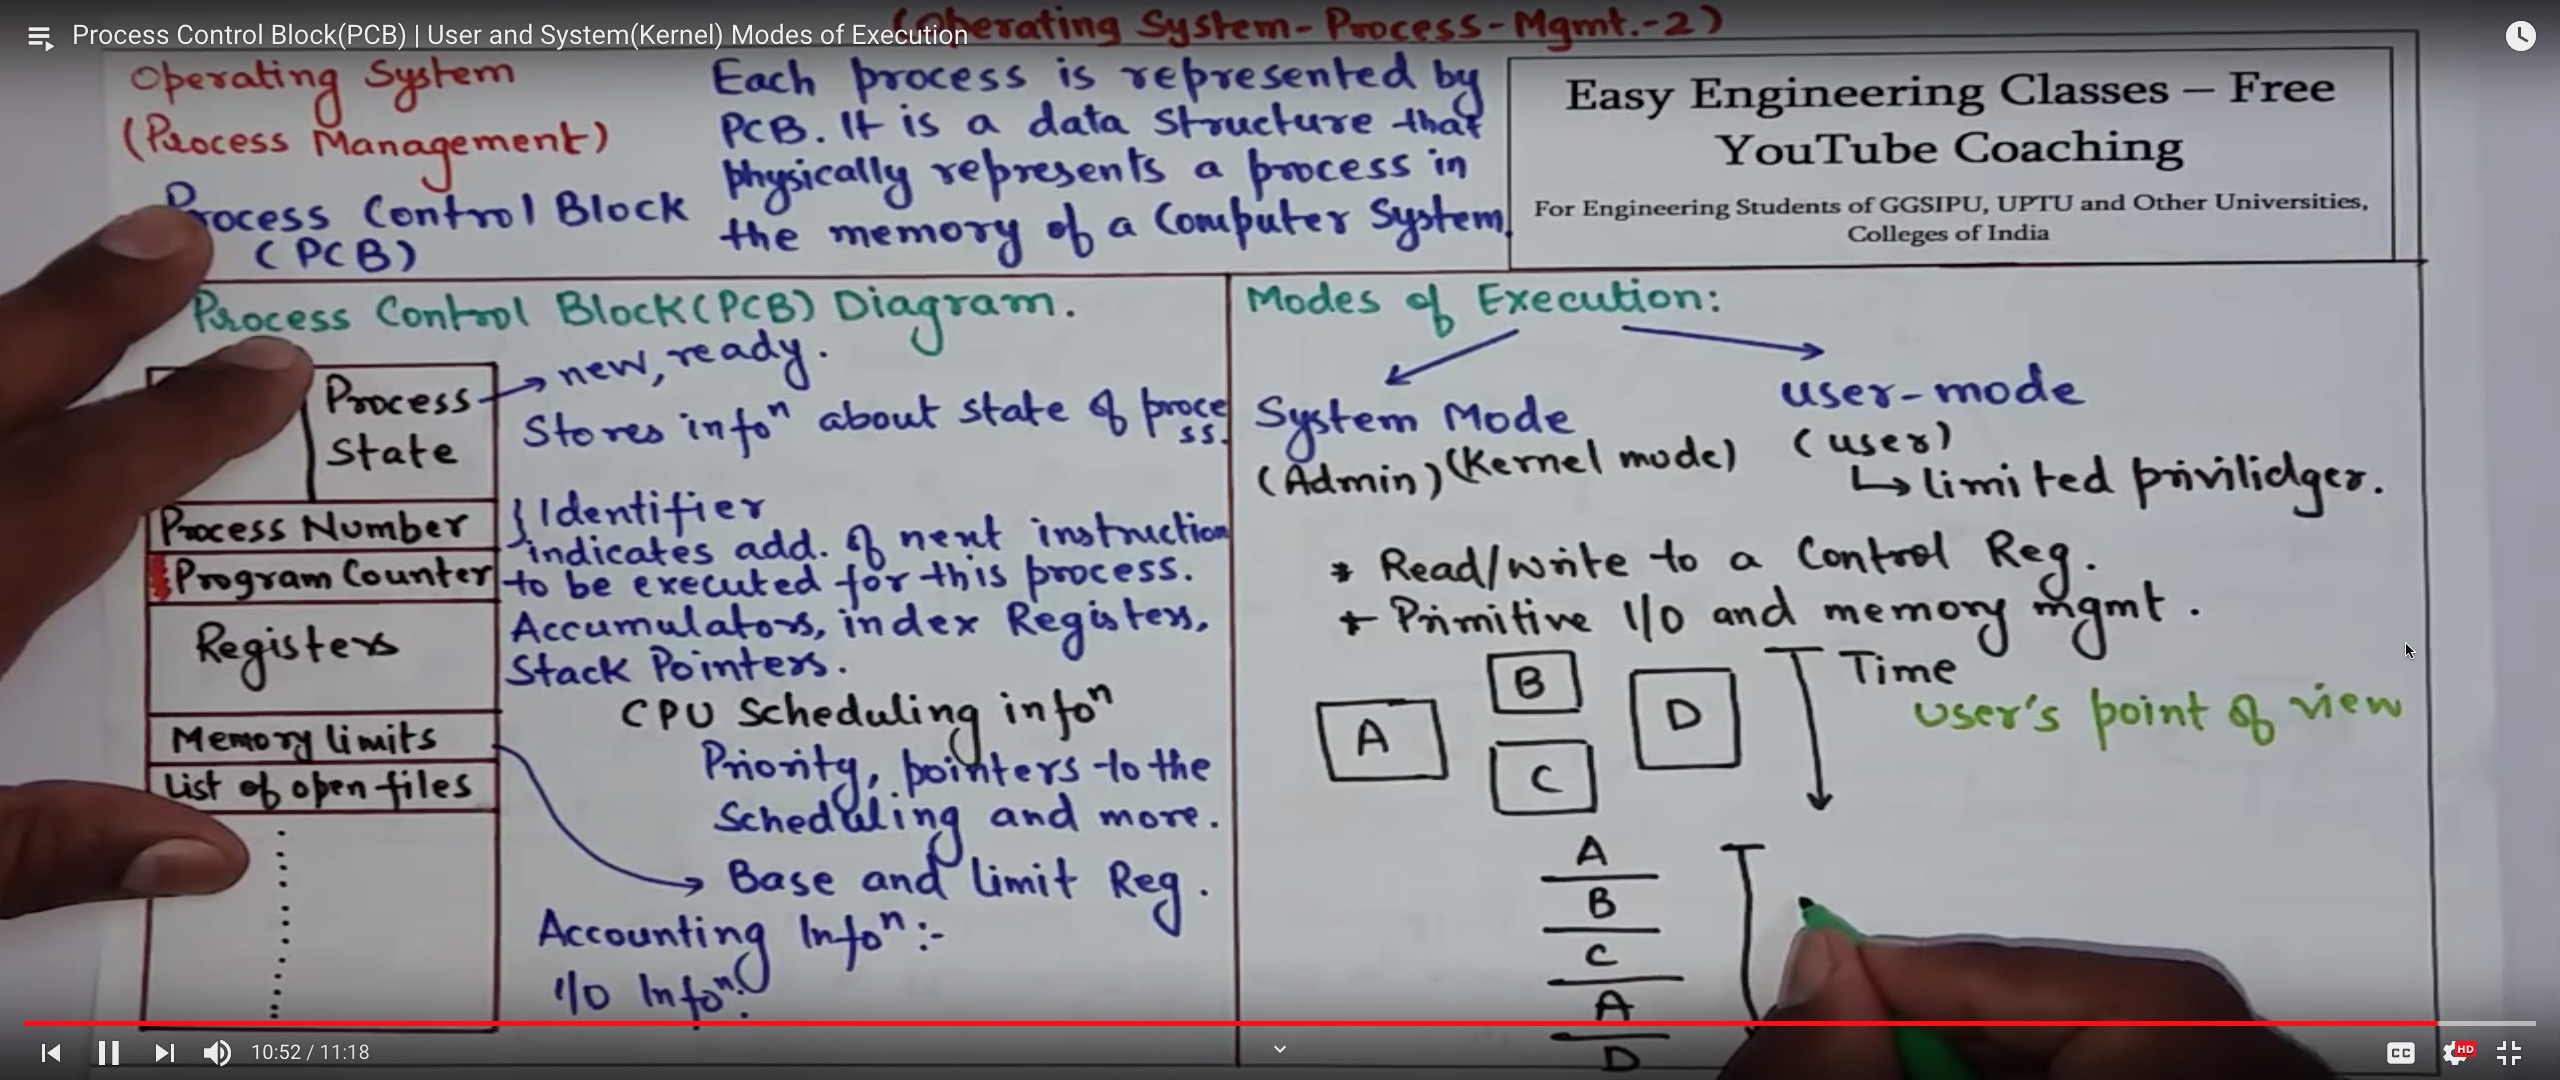 Process Control Block(PCB) | User and System(Kernel) Modes of Execution
(Operating System-Process-Mgmt.-2)
Operating System
(Process Management)
Process Control Block
(PCB)
Each process is represented by
PCB. It is a data structure that
physically represents a process in
the memory of a Computer System.
Easy Engineering Classes – Free
YouTube Coaching
For Engineering Students of GGSIPU, UPTU and Other Universities,
Colleges of India
Process Control Block(PCB) Diagram.
Process
State
new, ready.
Stores infoⁿ about state of proce
ss.
Process Number
Identifier
Program Counter
indicates add. of next instruction
to be executed for this process.
Registers
Accumulators, index Registers,
Stack Pointers.
CPU Scheduling infoⁿ
Priority, pointers to the
Scheduling and more.
Memory limits
Base and limit Reg.
List of open files
Accounting Infoⁿ:-
I/O Infoⁿ.
Modes of Execution:
System Mode
(Admin) (Kernel mode)
user-mode
(user)
limited privilidger.
* Read/write to a Control Reg.
* Primitive I/O and memory mgmt.
A
B
C
D
Time
user's point of view
A
B
C
A
D
10:52 / 11:18
CC
HD